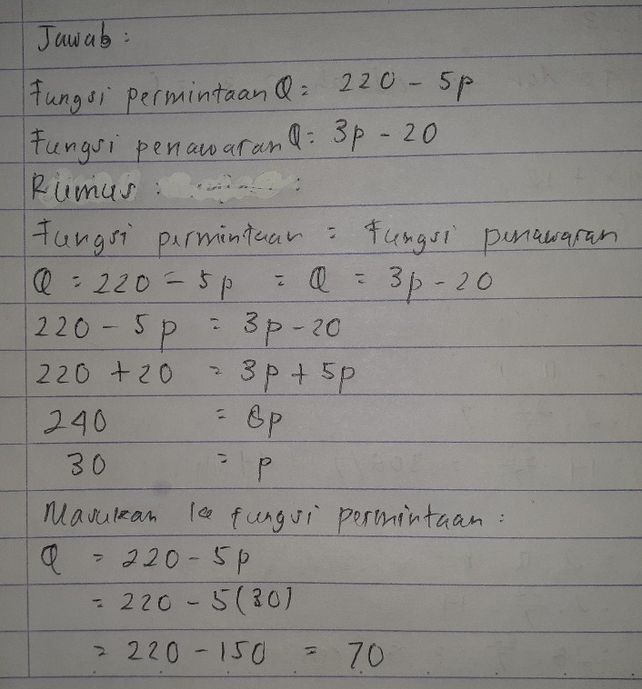 Jawab :
Fungsi permintaan Q = 220 - 5p
Fungsi penawaran Q = 3p - 20
Rumus :          :
Fungsi permintaan = Fungsi penawaran
Q = 220 - 5p = Q = 3p - 20
220 - 5p = 3p - 20
220 + 20 = 3p + 5p
240 = 8p
30 = p
Masukan ke fungsi permintaan :
Q = 220 - 5p
= 220 - 5(30)
= 220 - 150 = 70